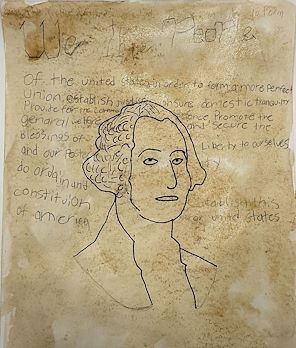 We the People
Of the united States in order to form a more perfect
Union, establish insure domestic tranquility
Provide for the common Promote the
general welfare and secure the
blessings of Liberty to ourselves
and our
do ordain and establish this
constitution united States
of america